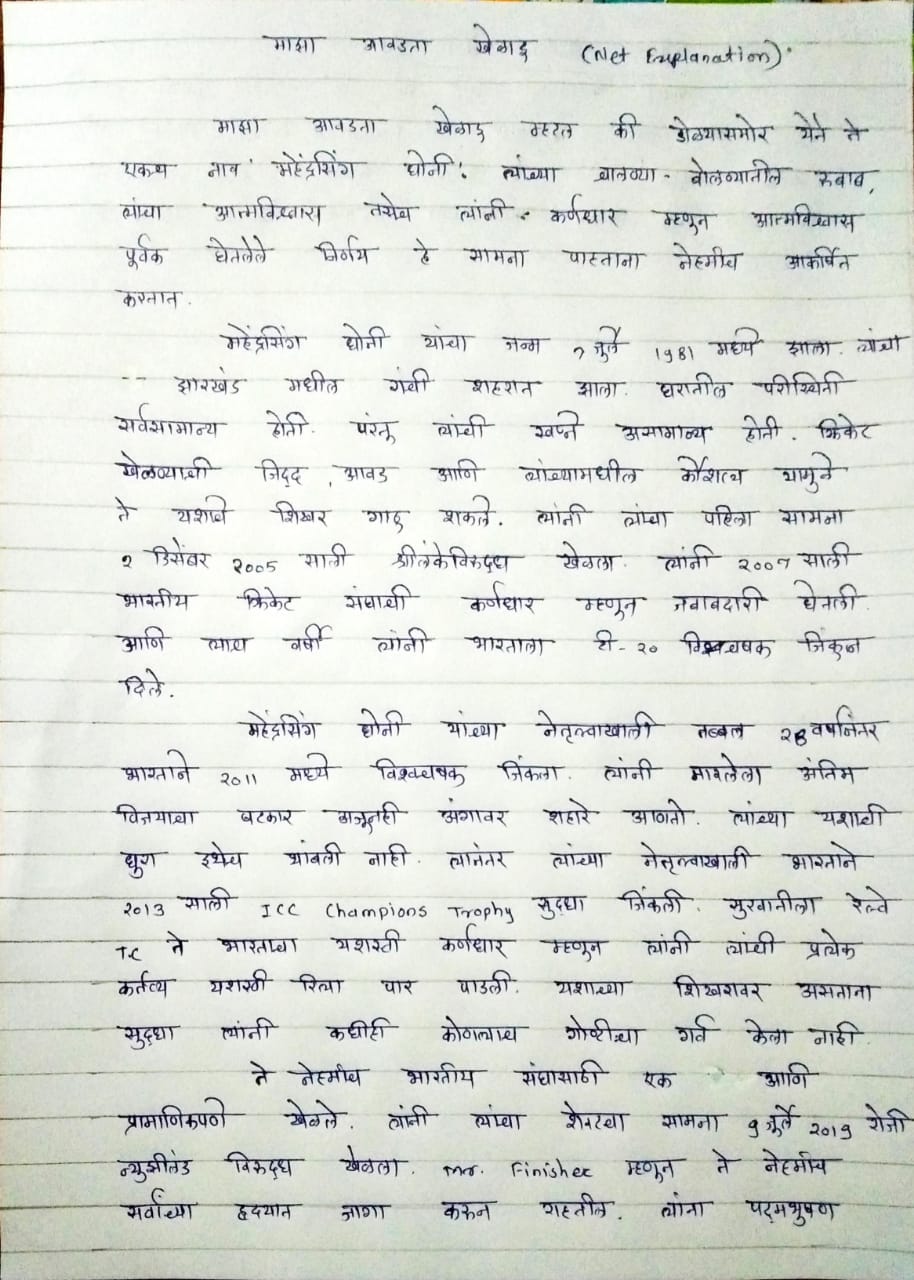 माझा आवडता खेळाडू (Net Explanation)
माझा आवडता खेळाडू म्हटल की डोळ्यासमोर येते ते
एकच नाव 'महेंद्रसिंग धोनी'. त्यांच्या चालव्या - बोलव्यातील रुबाब,
त्यांचा आत्मविश्वास तसेच त्यांनी कर्णधार म्हणून आत्मविश्वास
पूर्वक घेतलेले निर्णय हे सामना पाहताना नेहमीच आकर्षित
करतात.
महेंद्रसिंग धोनी यांचा जन्म ७ जुलै 1981 मध्ये झाला. त्यांचा
झारखंड मधील रांची शहरात झाला. घरातील परीस्थिती
सर्वसामान्य होती. परंतू त्यांची स्वप्ने असामान्य होती. क्रिकेट
खेळव्याची जिद्द, आवड आणि त्यांच्यामधील कौशल्य यामुळे
ते यशाचे शिखर गाठू शकले. त्यांनी त्यांचा पहिला सामना
२ डिसेंबर २००5 साली श्रीलंकेविरुद्ध खेळला. त्यांनी २००७ साली
भारतीय क्रिकेट संघाची कर्णधार म्हणून जवाबदारी घेतली.
आणि त्याच वर्षी त्यांनी भारताला टी-२० विश्वचषक जिंकून
दिले.
महेंद्रसिंग धोनी यांच्या नेतृत्वाखाली तब्बल २8 वर्षानंतर
भारताने २०11 मध्ये विश्वचषक जिंकला. त्यांनी मारलेला अंतिम
विजयाचा षटकार अजूनही अंगावर शहारे आणतो. त्यांच्या यशाची
धुरा इथेच थांबली नाही. त्यानंतर त्यांच्या नेतृत्वाखाली भारताने
२०13 साली ICC Champions Trophy सुद्धा जिंकली. सुरवातीला रेल्वे
TC ते भारताचा यशस्वी कर्णधार म्हणून त्यांनी त्यांची प्रत्येक
कर्तव्य यशस्वी रित्या पार पाडली. यशाच्या शिखरावर असताना
सुद्धा त्यांनी कधीही कोणत्याच गोष्टीचा गर्व केला नाही.
ते नेहमीच भारतीय संघासाठी एक आणि
प्रामाणिकपणे खेळले. त्यांनी त्यांचा शेवटचा सामना 9 जुलै २०19 रोजी
न्युझीलंड विरुद्ध खेळला. Mr. Finisher म्हणून ते नेहमीच
सर्वांच्या हृदयात जागा करून राहतील. त्यांना पद्मभुषण